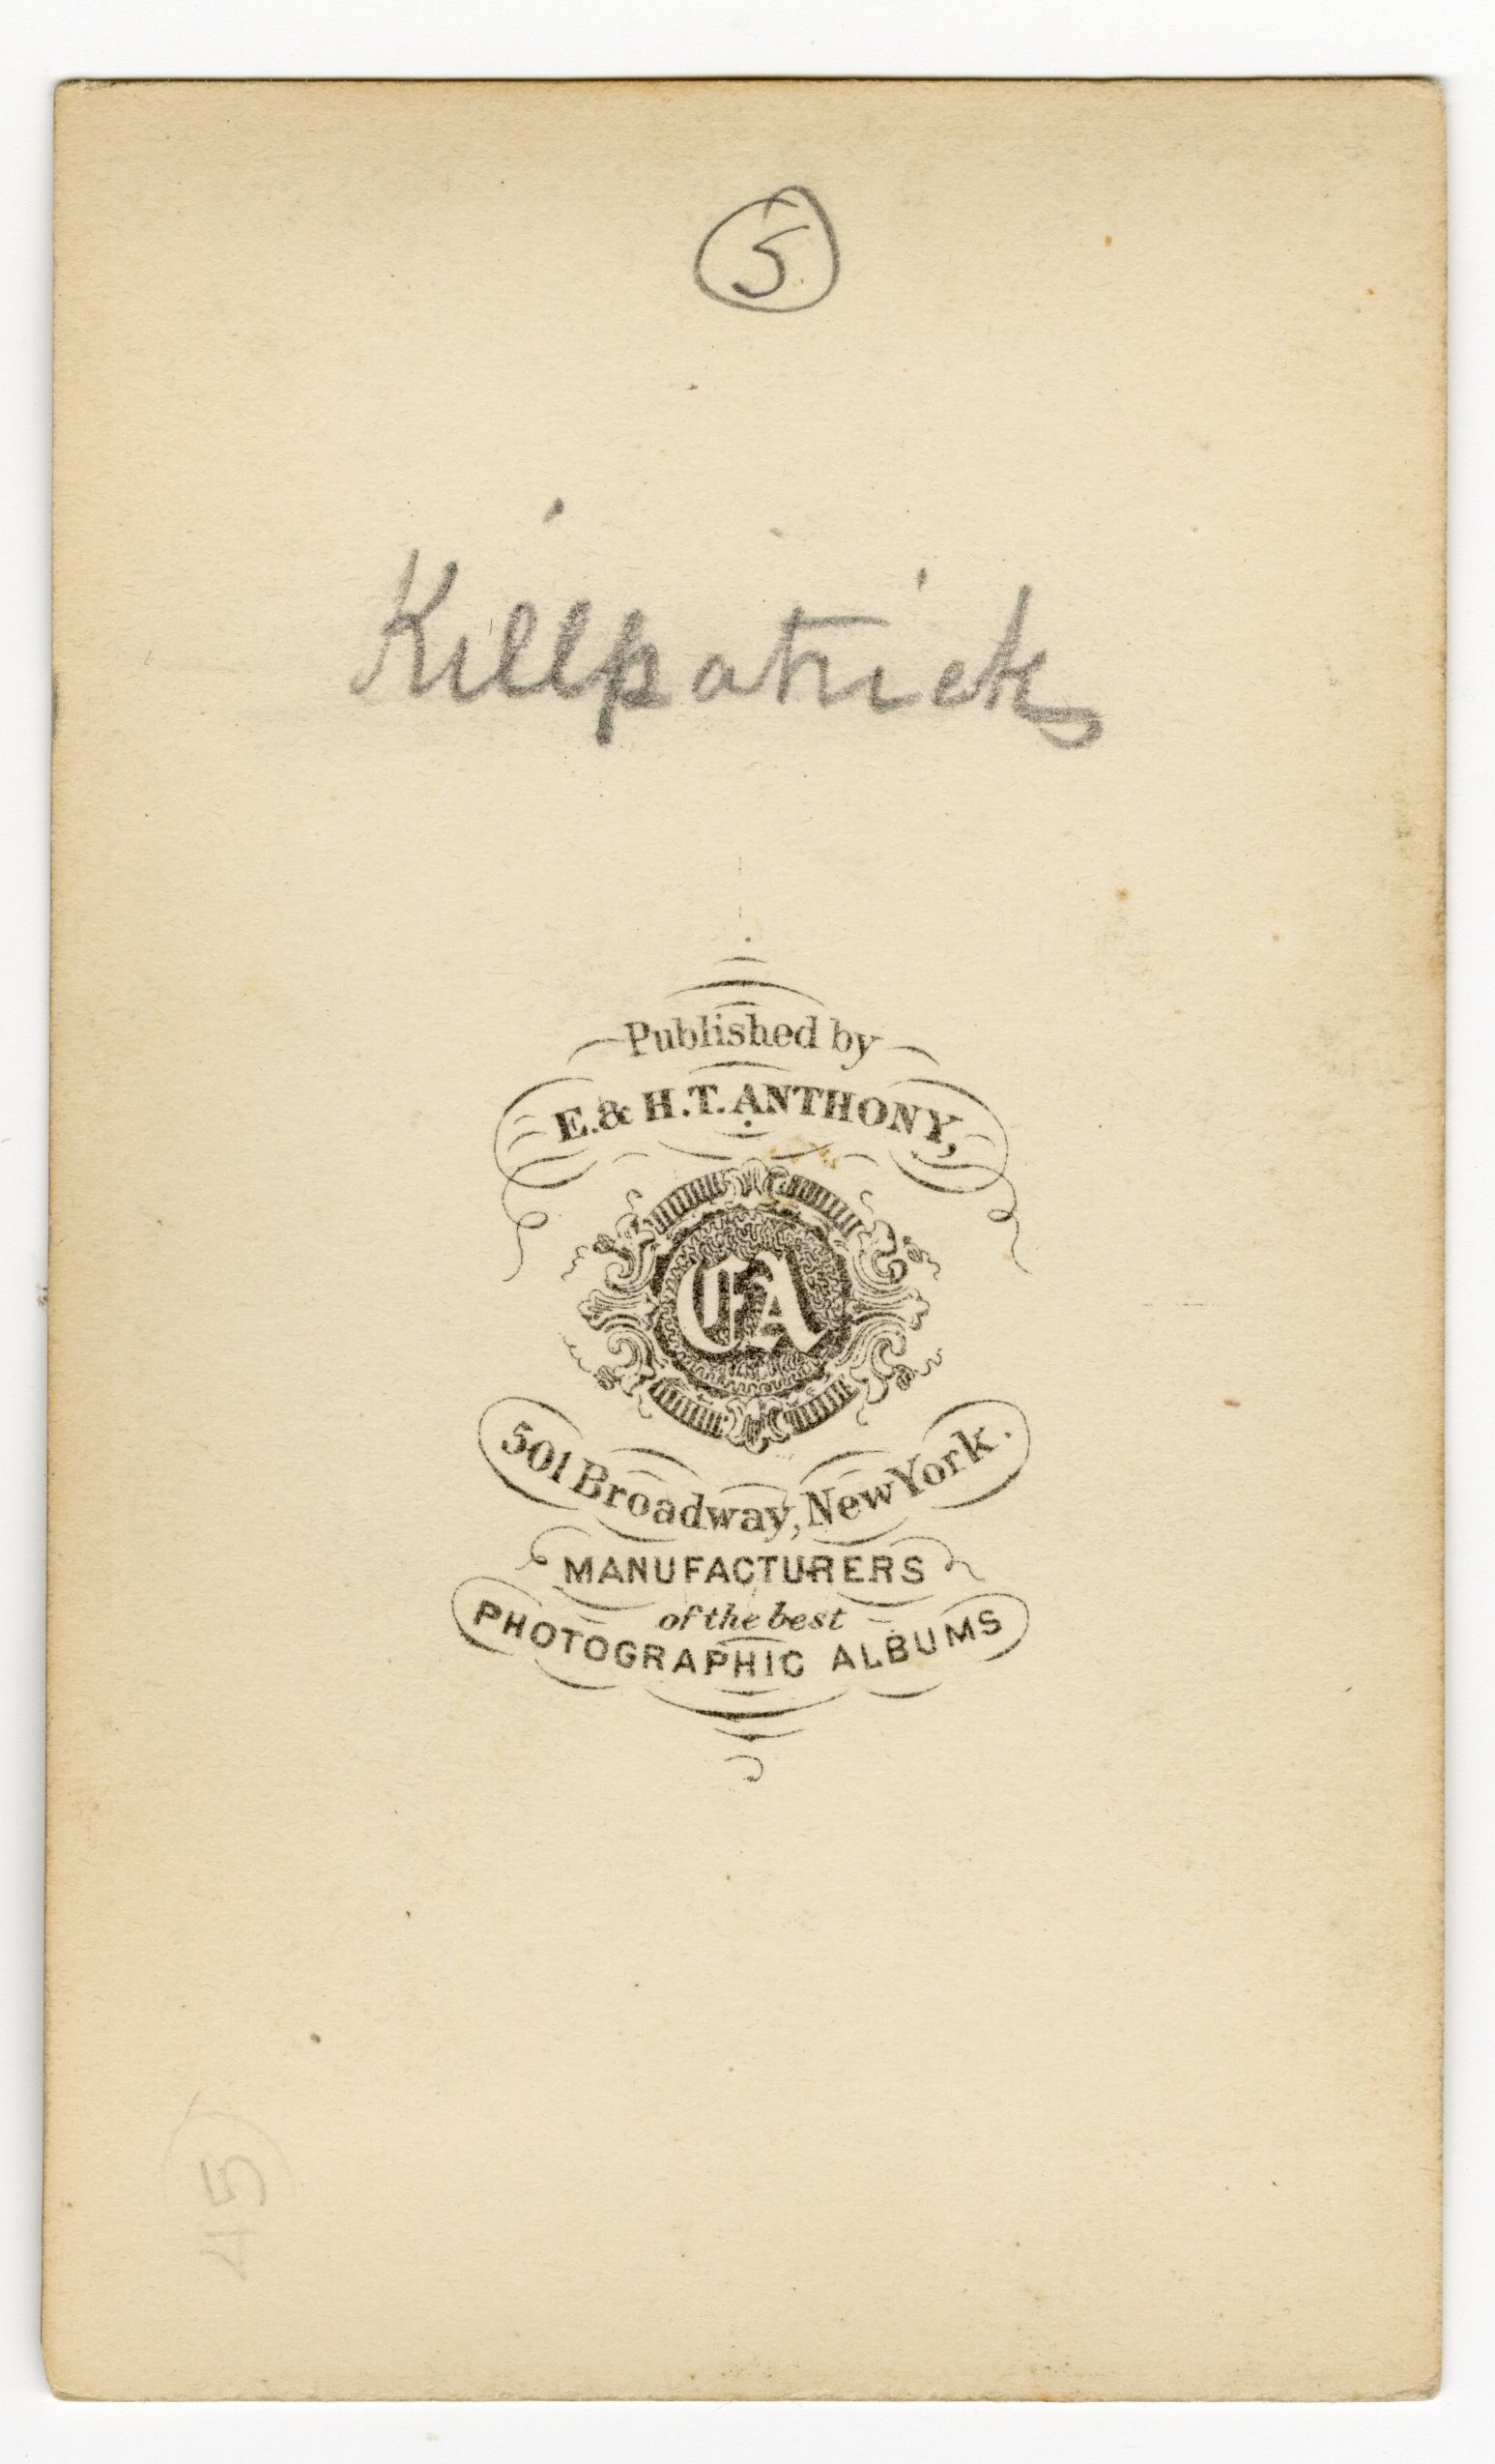 5
Killpatrick
Published by
E. & H. T. ANTHONY,
EA
501 Broadway, New York.
MANUFACTURERS
of the best
PHOTOGRAPHIC ALBUMS
45